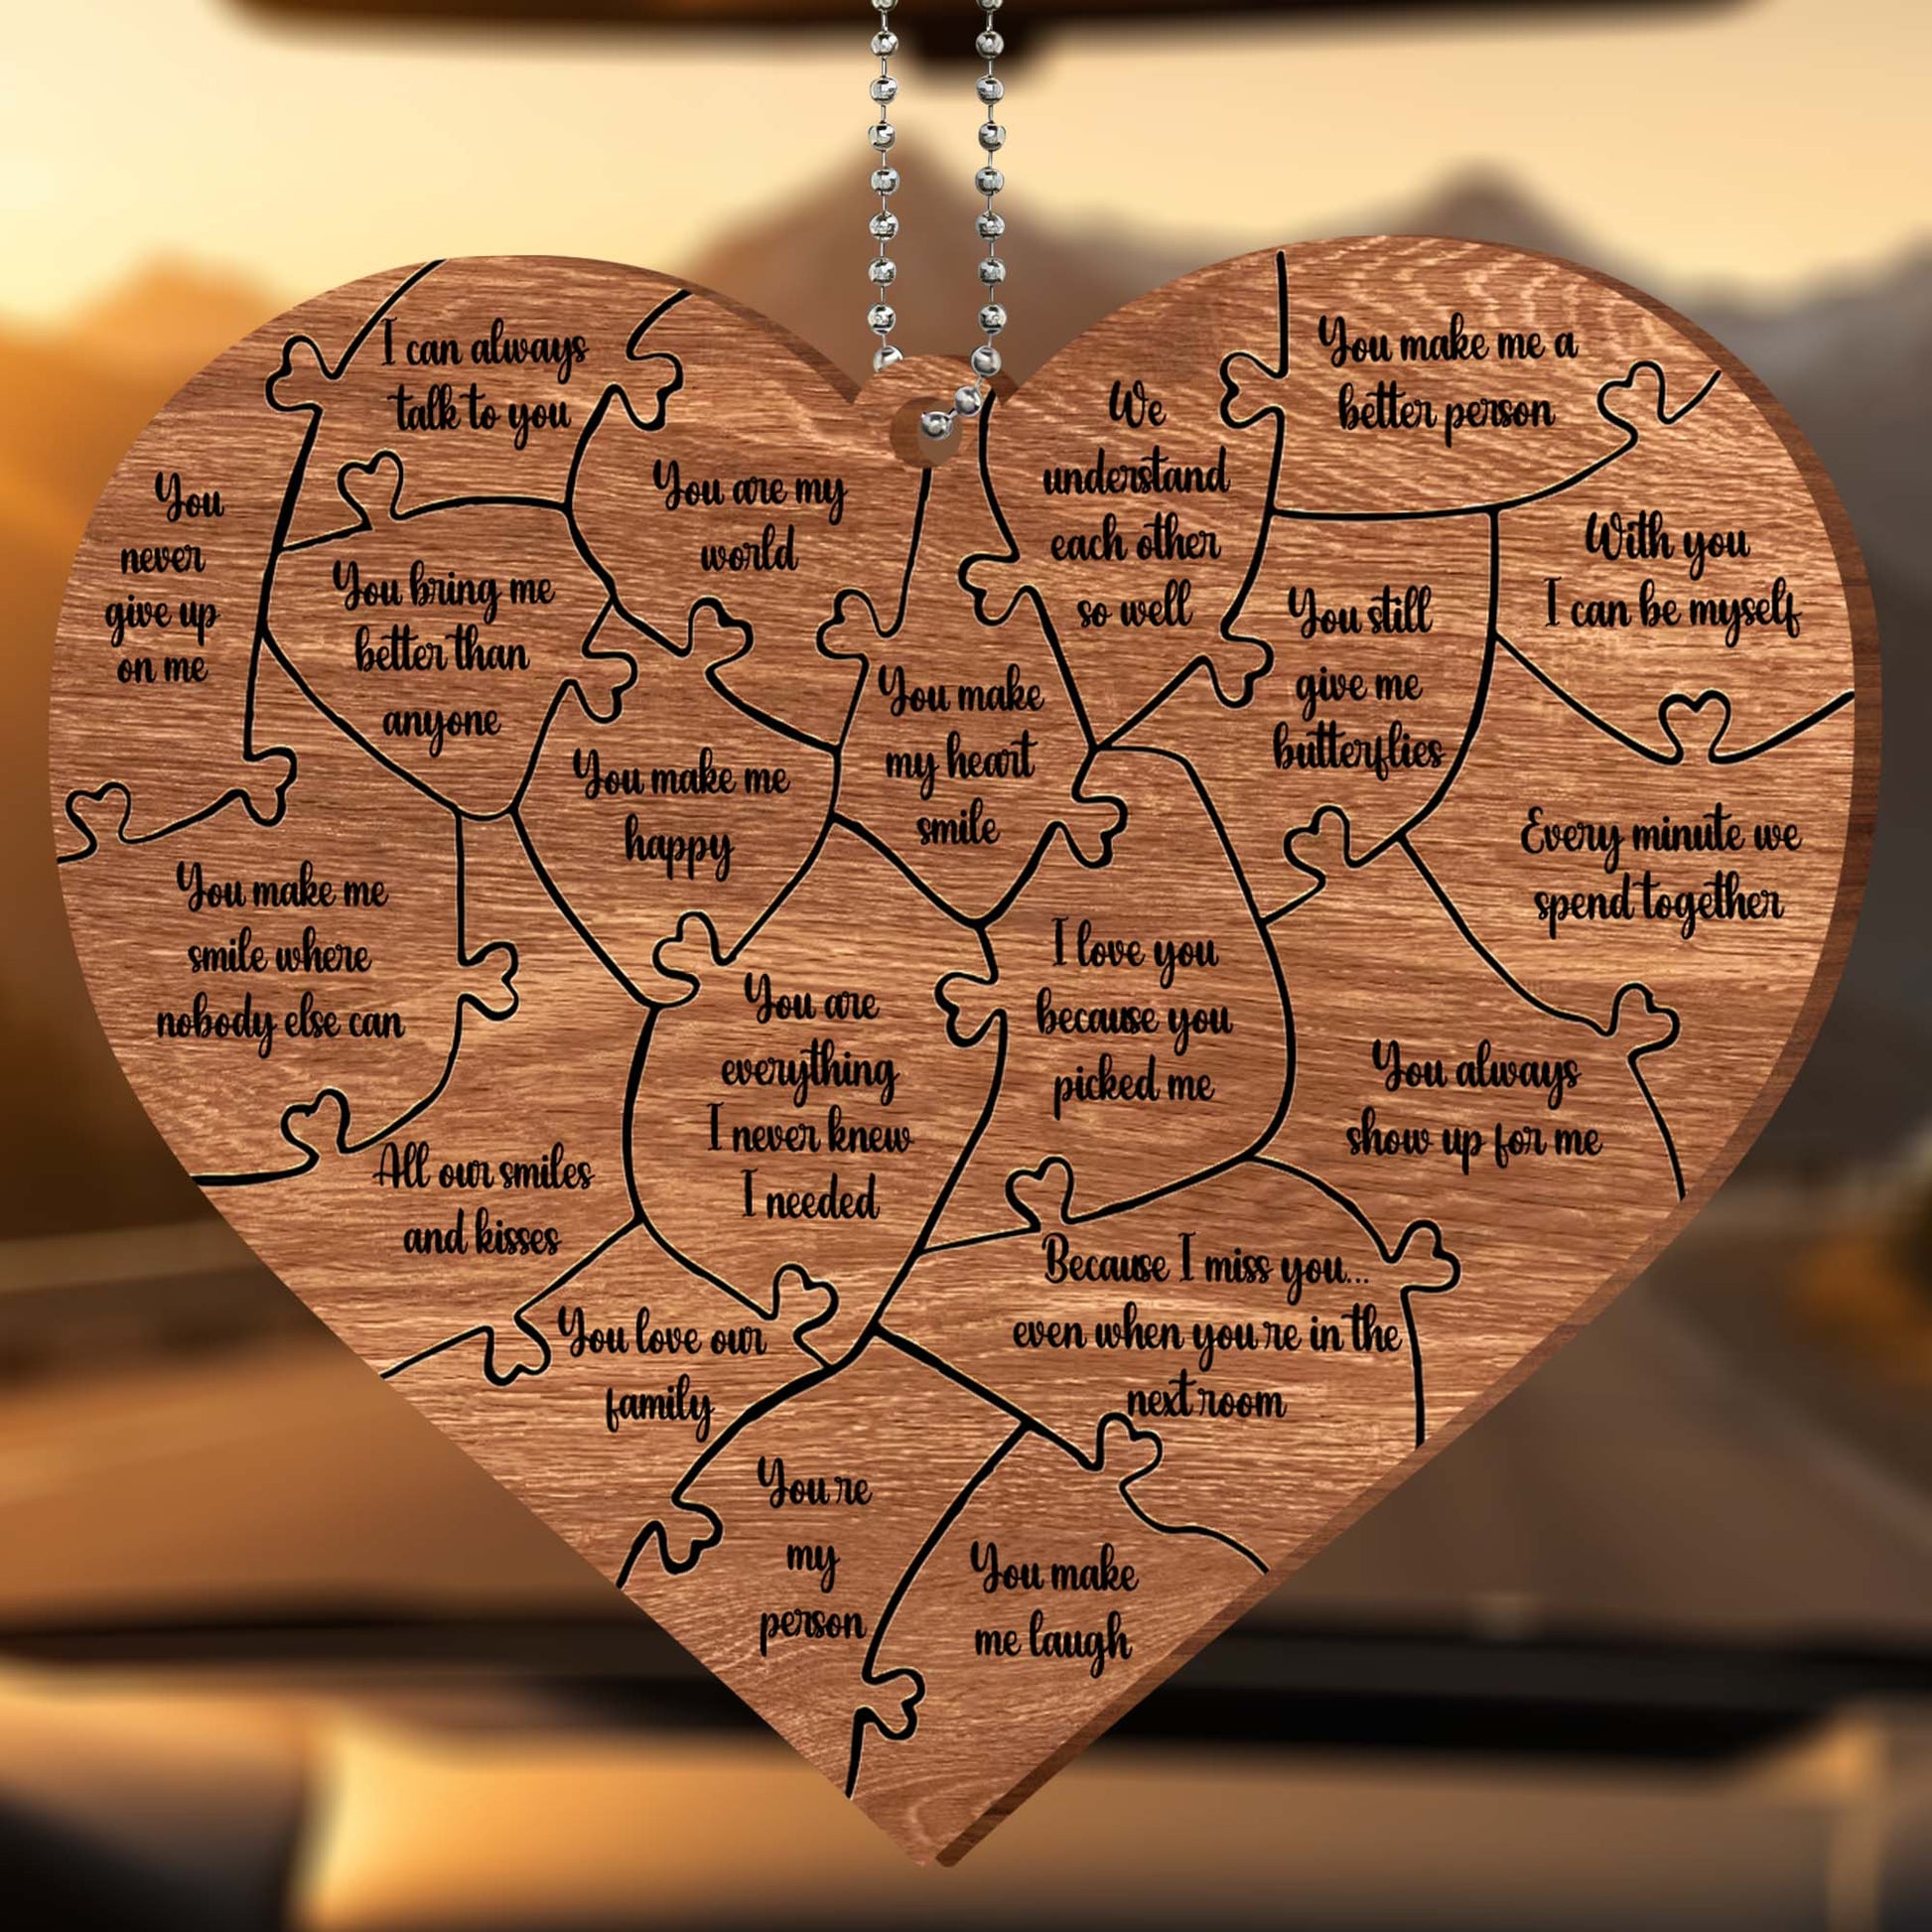 I can always
talk to you
You make me a
better person
We
understand
each other
so well
You are my
world
You
never
give up
on me
With you
I can be myself
You bring me
better than
anyone
You still
give me
butterflies
You make
my heart
smile
You make me
happy
Every minute we
spend together
You make me
smile where
nobody else can
I love you
because you
picked me
You are
everything
I never knew
I needed
You always
show up for me
All our smiles
and kisses
Because I miss you...
even when you're in the
next room
You love our
family
You're
my
person
You make
me laugh